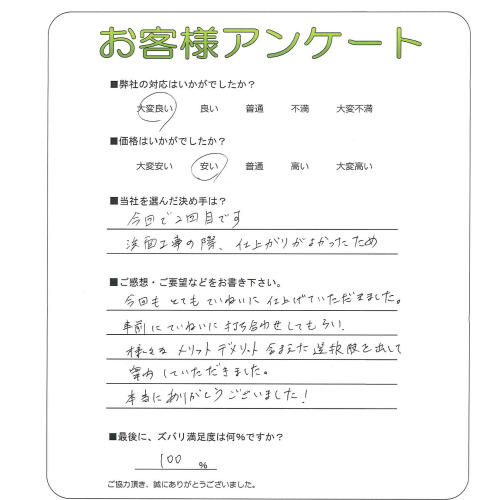 お客様アンケート
■弊社の対応はいかがでしたか？
大変良い 良い 普通 不満 大変不満
■価格はいかがでしたか？
大変安い 安い 普通 高い 大変高い
■当社を選んだ決め手は？
今回で2回目です
法面工事の際、仕上がりがよかったため
■ご感想・ご要望などをお書き下さい。
今回も とてもていねいに 仕上げていただきました。
事前にていねいに打ち合わせしてもらい、
様々な メリット デメリット 含まえた 選択肢を出して
案内していただきました。
本当にありがとうございました！
■最後に、ズバリ満足度は何％ですか？
100 ％
ご協力頂き、誠にありがとうございました。